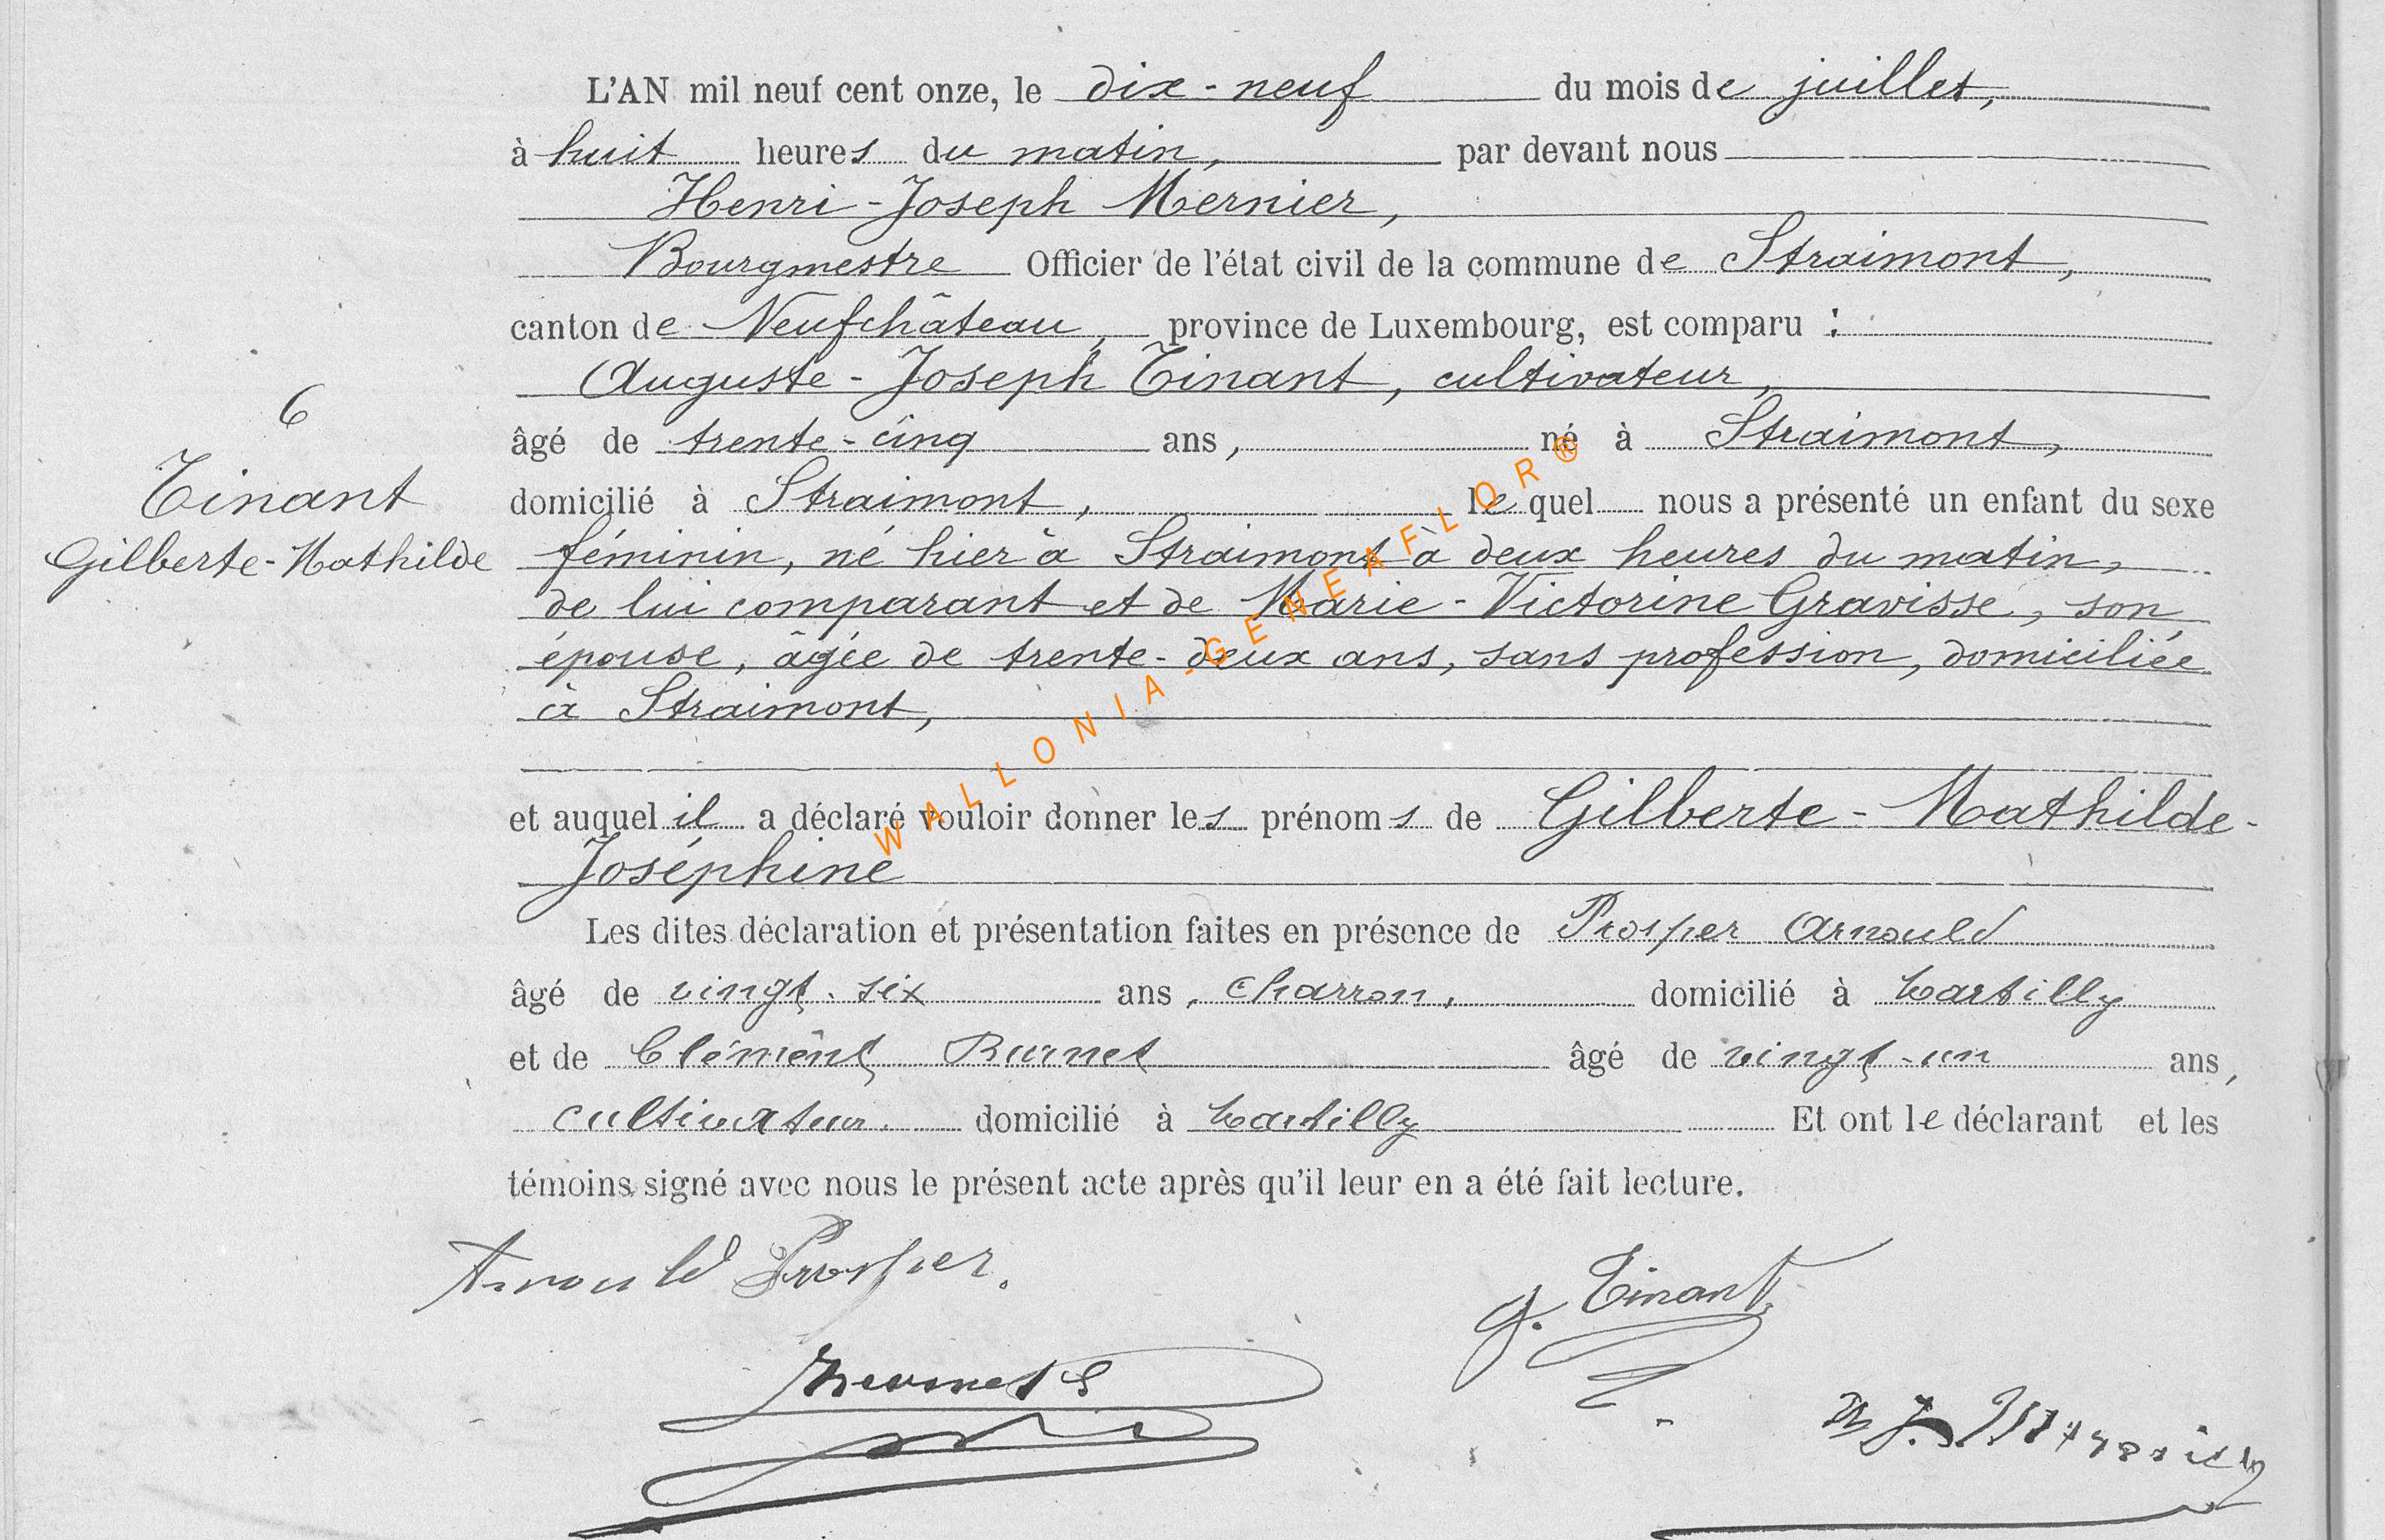 L'AN mil neuf cent onze, le dix-neuf du mois de juillet,
à huit heures du matin, par devant nous
Henri-Joseph Mernier,
Bourgmestre Officier de l'état civil de la commune de Straimont,
canton de Neufchâteau, province de Luxembourg, est comparu :
Auguste-Joseph Tinant, cultivateur,
6
âgé de trente-cinq ans, né à Straimont,
Tinant
domicilié à Straimont, lequel nous a présenté un enfant du sexe
Gilberte-Mathilde
féminin, né hier à Straimont à deux heures du matin,
de lui comparant et de Marie-Victorine Gravisse, son
épouse, âgée de trente-deux ans, sans profession, domiciliée
à Straimont,
et auquel il a déclaré vouloir donner les prénoms de Gilberte-Mathilde-
Joséphine
Les dites déclaration et présentation faites en présence de Prosper Arnould
âgé de vingt-six ans, charron, domicilié à Martilly
et de Clément Burnet âgé de vingt-un ans,
cultivateur. domicilié à Martilly Et ont le déclarant et les
témoins signé avec nous le présent acte après qu'il leur en a été fait lecture.
Arnould Prosper.
J. Tinant
WALLONIA-GENEAFLOR®